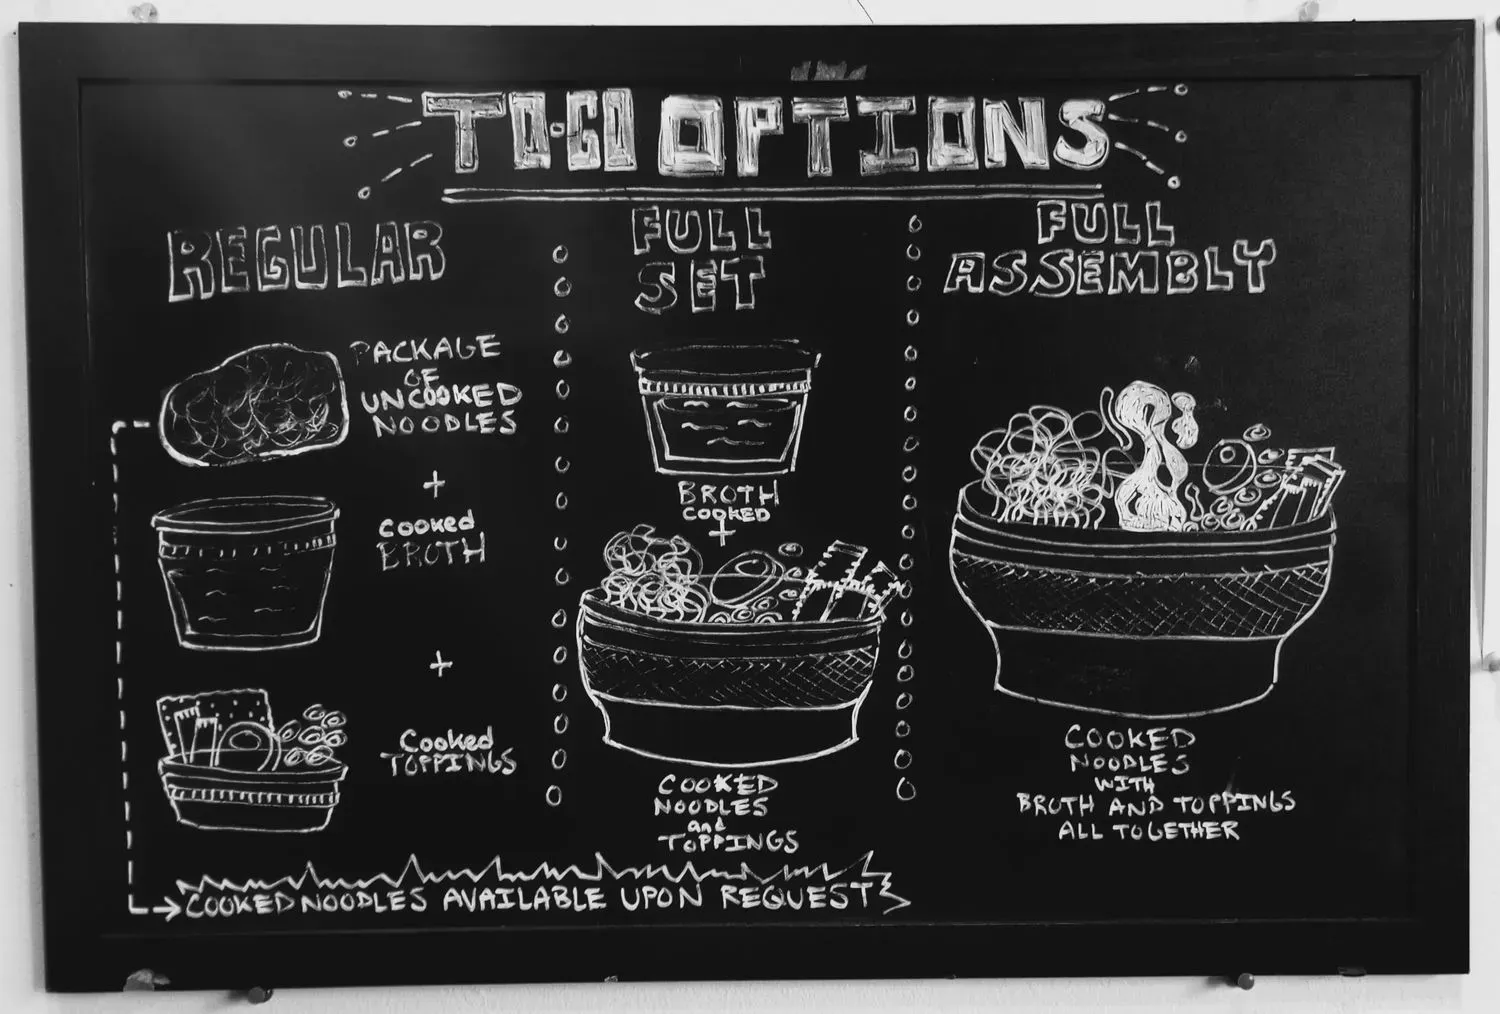 TO-GO OPTIONS
REGULAR
PACKAGE
OF
UNCOOKED
NOODLES
+
cooked
BROTH
+
Cooked
TOPPINGS
FULL
SET
BROTH
COOKED
+
COOKED
NOODLES
and
TOPPINGS
FULL
ASSEMBLY
COOKED
NOODLES
WITH
BROTH AND TOPPINGS
ALL TOGETHER
COOKED NOODLES AVAILABLE UPON REQUEST